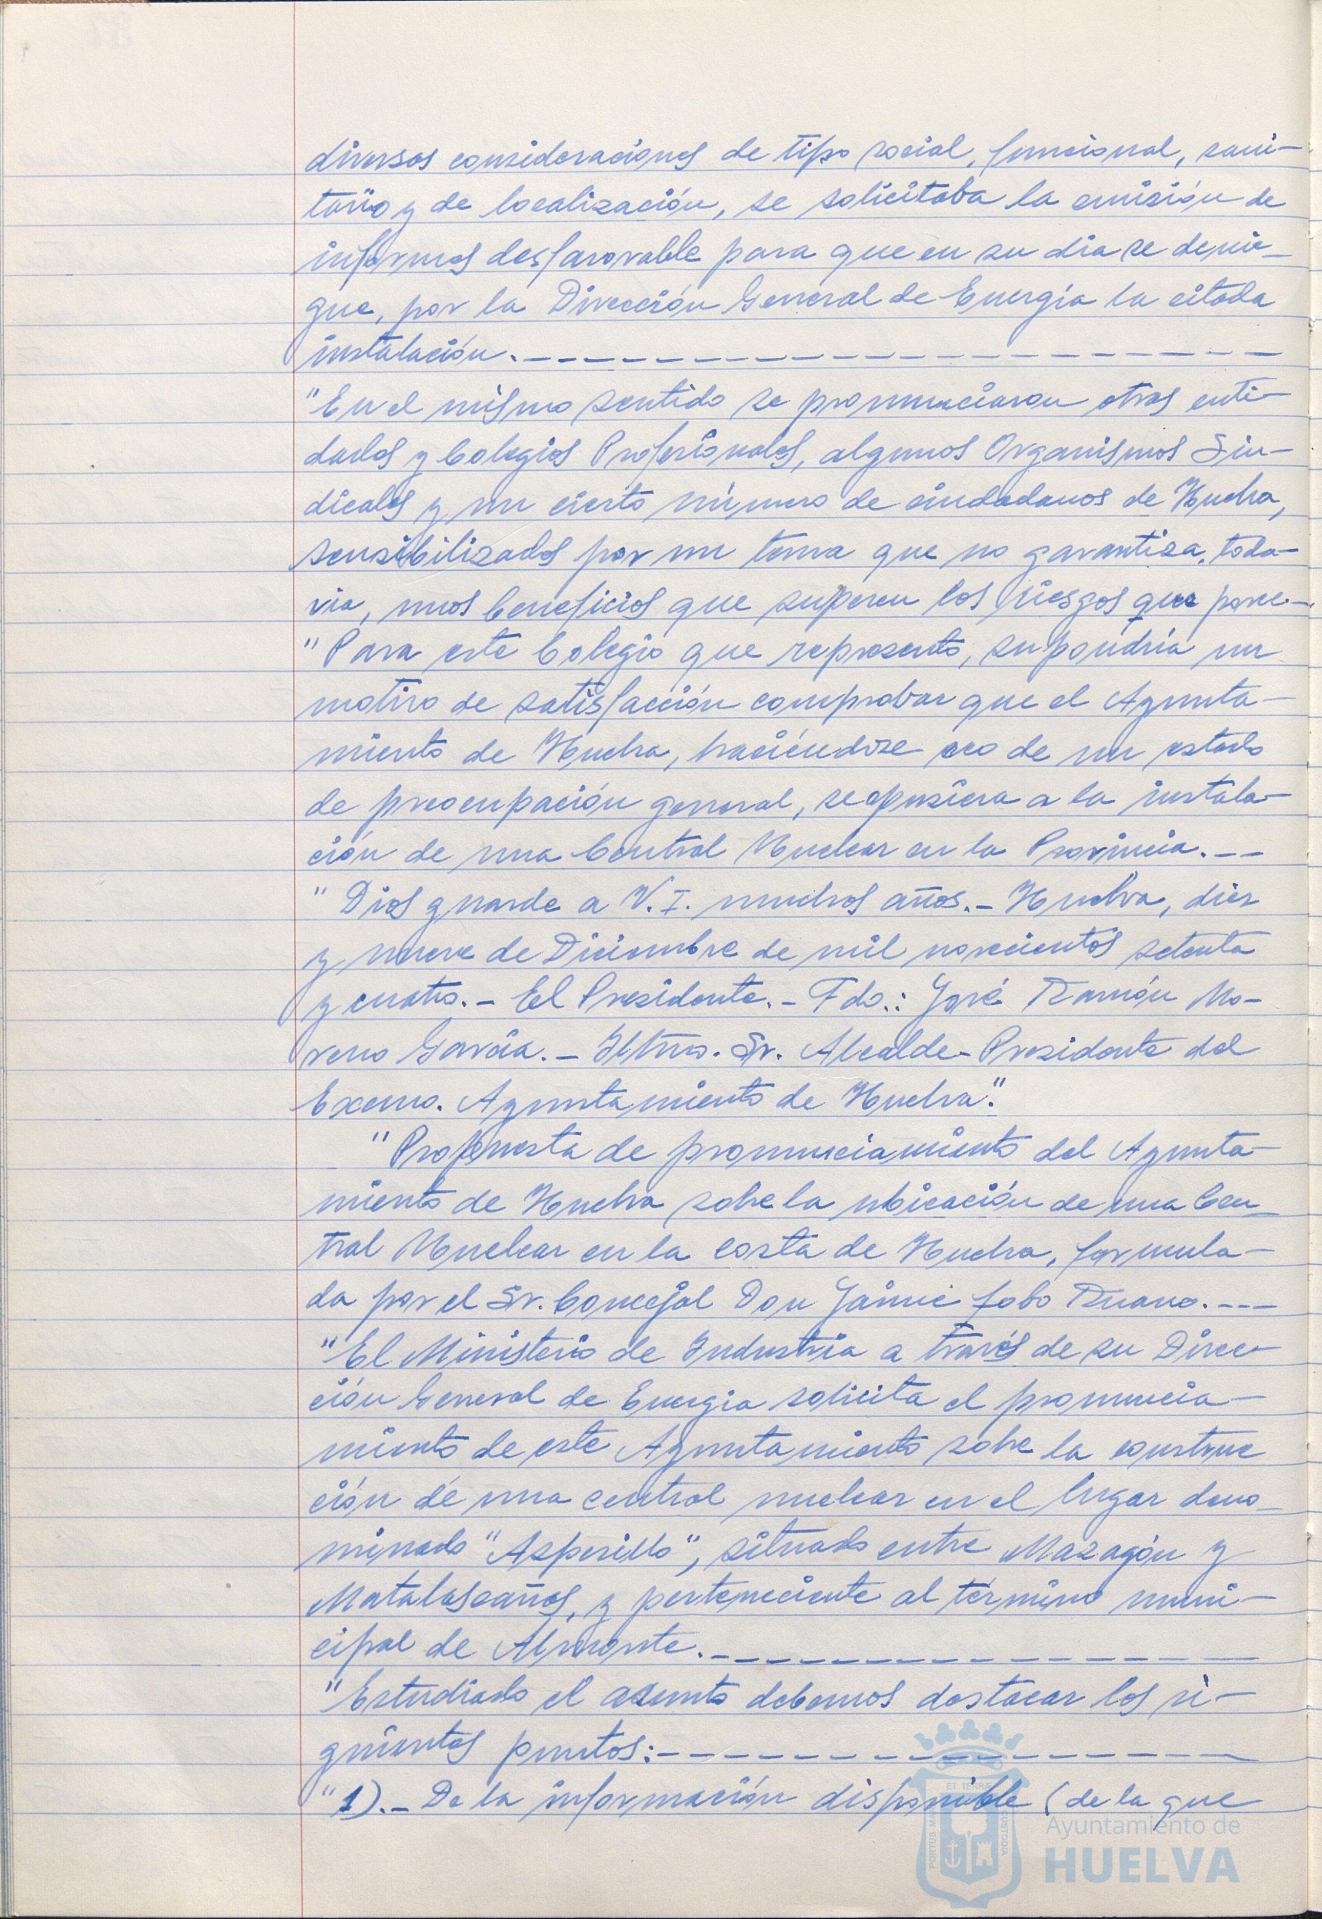 diversas consideraciones de tipo social, funcional, sani-
tario y de localización, se solicitaba la emisión de
informes desfavorable para que en su dia se denie-
gue, por la Dirección General de Energía la citada
instalación.
"En el mismo sentido se pronunciaron otras enti-
dades y Colegios Profesionales, algunos Organismos Sin-
dicales y un cierto número de ciudadanos de Huelva,
sensibilizados por un tema que no garantiza, toda-
via, unos beneficios que superen los riesgos que
"Para este Colegio que represento, supondría un
motivo de satisfacción comprobar que el Ayunta-
miento de Huelva, haciéndose eco de un estado
de preocupación general, se opusiera a la instala-
ción de una Central Nuclear en la Provincia.--
"Dios guarde a V.I. muchos años.- Huelva, diez
y nueve de Diciembre de mil novecientos setenta
y cuatro.- El Presidente.- Fdo.: José Ramón Mo-
reno García.- Iltmo. Sr. Alcalde-Presidente del
Excmo. Ayuntamiento de Huelva".
"Propuesta de pronunciamiento del Ayunta-
miento de Huelva sobre la ubicación de una Cen-
tral Nuclear en la costa de Huelva, formula-
da por el Sr. Concejal Don Jaime Lobo Ruano.---
"El Ministerio de Industria a través de su Direc-
ción General de Energia solicita el pronuncia-
miento de este Ayuntamiento sobre la construc
ción de una central nuclear en el lugar deno-
minado "Asperillo", situado entre Mazagón y
Matalascañas, y perteneciente al término muni-
cipal de Almonte.
"Estudiado el asunto debemos destacar los si-
guientes puntos:-
"1).- De la información disponible (de la que
Ayuntamiento de
HUELVA